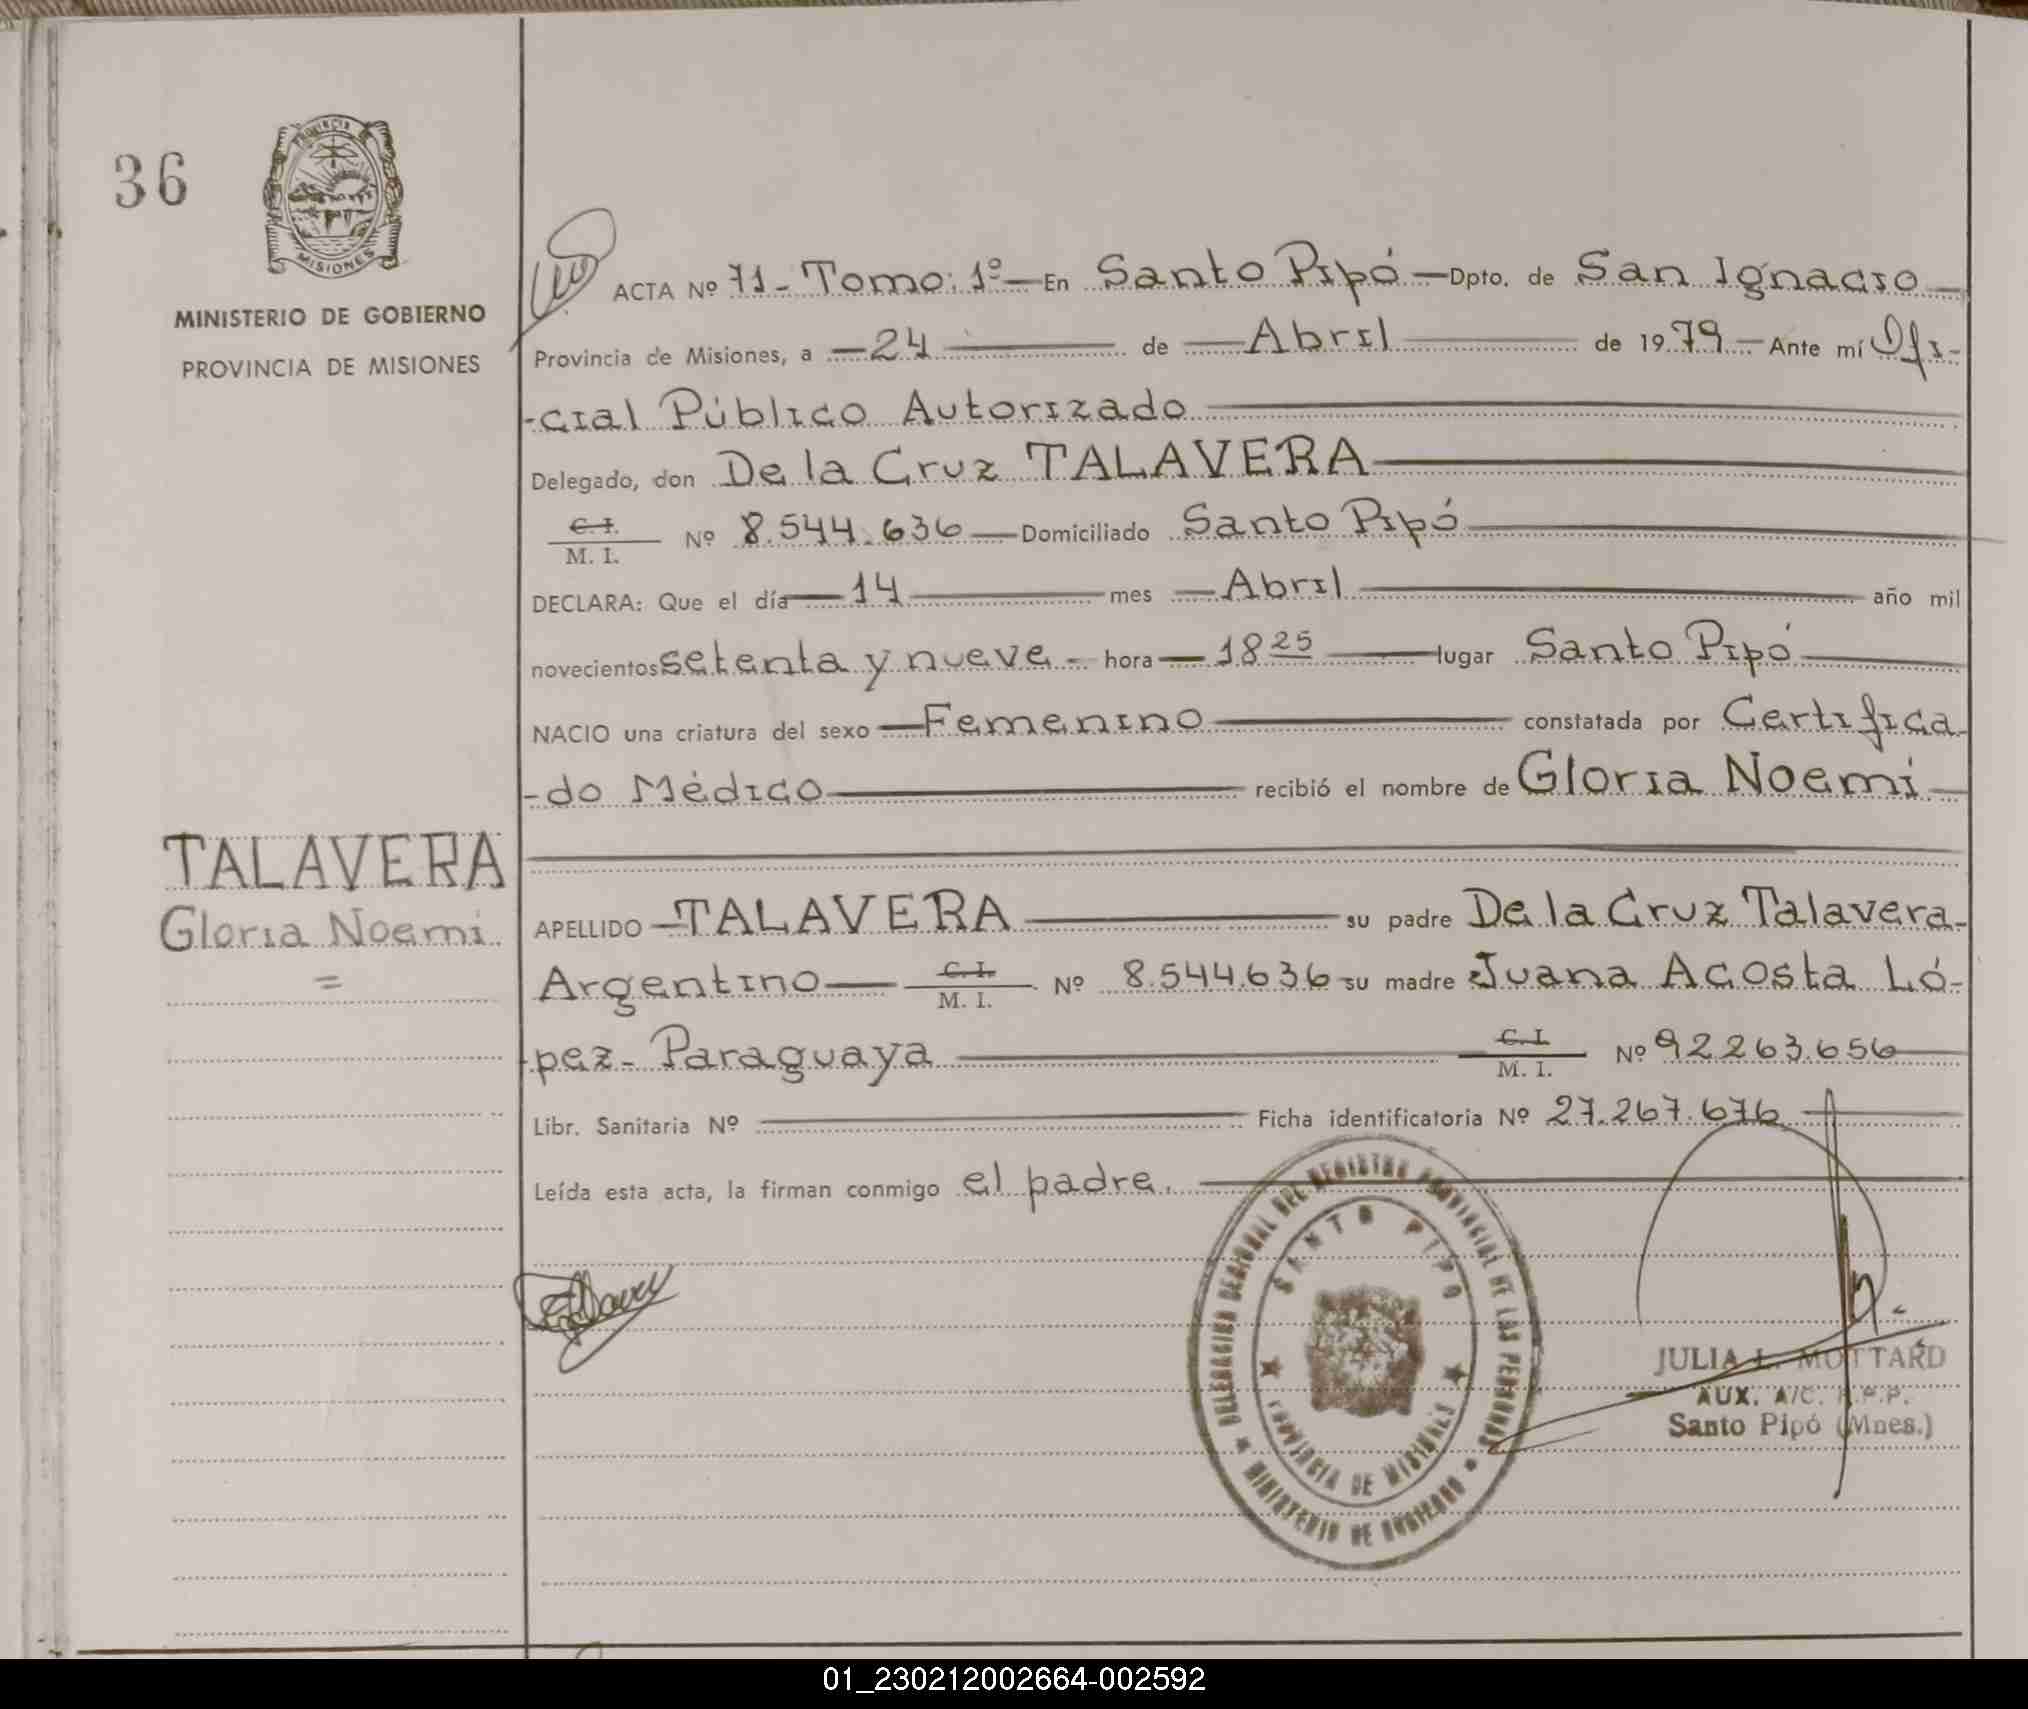 36
PROVINCIA DE
MISIONES
MINISTERIO DE GOBIERNO
PROVINCIA DE MISIONES
ACTA Nº 71- Tomo: 1º - En Santo Pipó - Dpto. de San Ignacio
Provincia de Misiones, a - 24 - de - Abril - de 1979 - Ante mí Ofi-
-cial Público Autorizado
Delegado, don De la Cruz TALAVERA
C. I.
M. I. Nº 8.544.636 - Domiciliado Santo Pipó
DECLARA: Que el día - 14 - mes - Abril - año mil
novecientos setenta y nueve - hora - 18 25 - lugar Santo Pipó
NACIO una criatura del sexo - Femenino - constatada por Certifica-
-do Médico - recibió el nombre de Gloria Noemí -
TALAVERA
Gloria Noemí
=
APELLIDO - TALAVERA - su padre De la Cruz Talavera-
Argentino - C. I. M. I. Nº 8.544.636 su madre Juana Acosta Ló-
pez - Paraguaya - C. I. M. I. Nº 92263.656
Libr. Sanitaria Nº - Ficha identificatoria Nº 27.267.676
Leída esta acta, la firman conmigo el padre.
DELEGACION REGIONAL DEL REGISTRO PROVINCIAL DE LAS PERSONAS
SANTO PIPO
PROVINCIA DE MISIONES
MINISTERIO DE GOBIERNO
JULIA L. MOTTARD
AUX. A/C. R.P.P.
Santo Pipó (Mnes.)
01_230212002664-002592